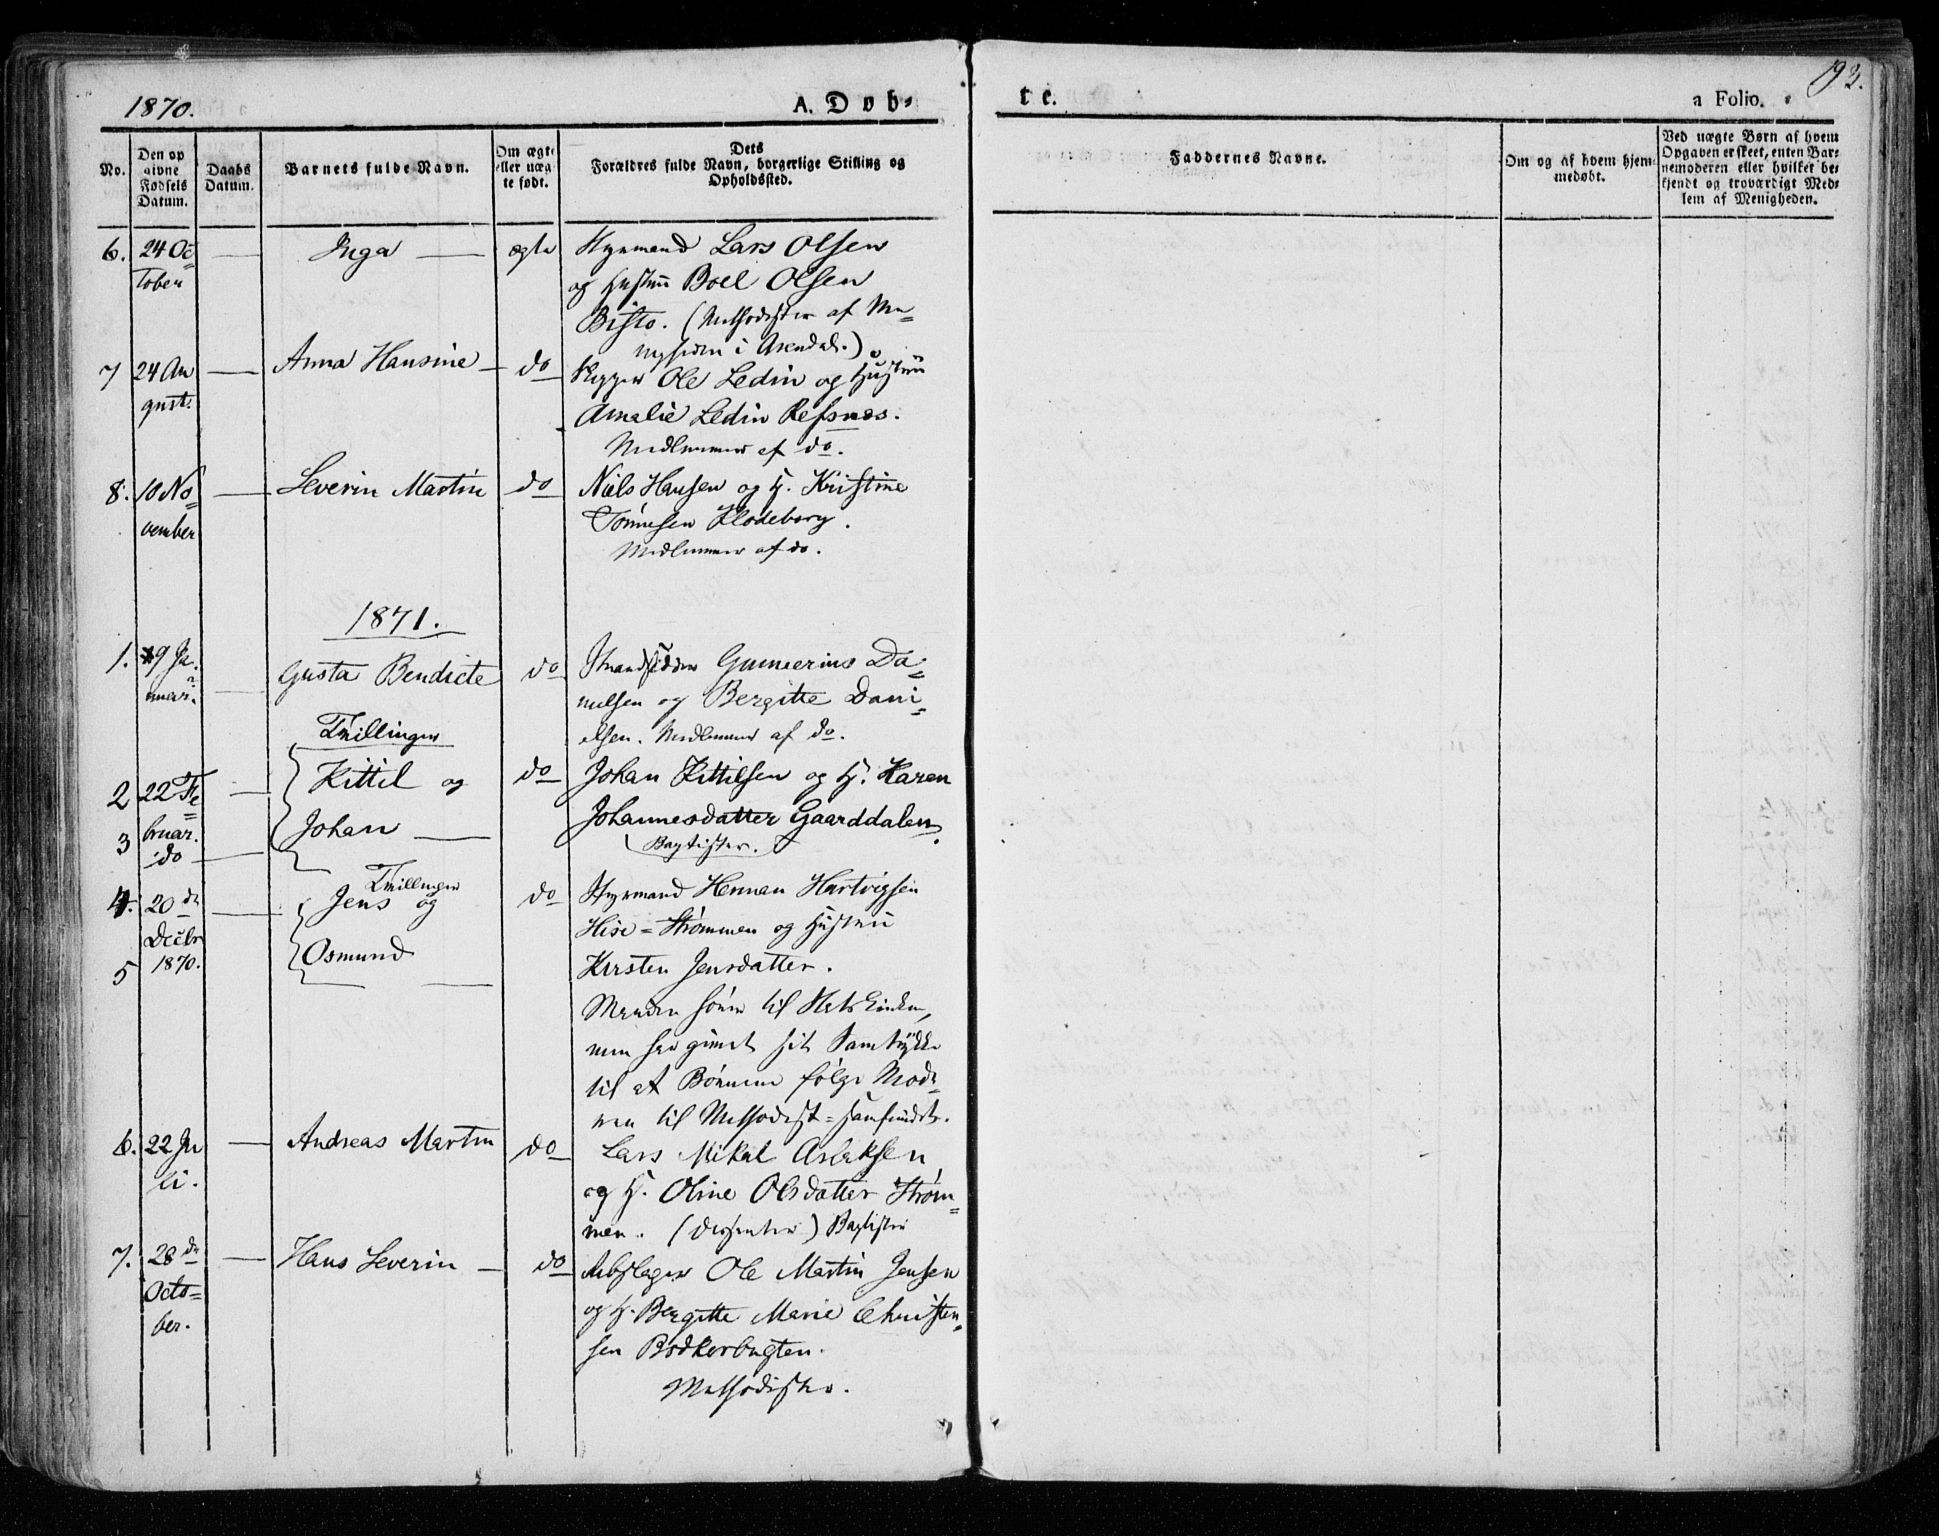 1870.
A. Døb-
te.
a Folio.
93.
No.
Den op
givne
Fødsels
Datum.
Daabs
Datum.
Barnets fulde Navn.
Om ægte
eller uæg-
te født.
Dets
Forældres fulde Navn, borgerlige Stilling og
Opholdssted.
Faddernes Navne.
Om og af hvem hjem-
medøbt.
Ved uægte Børn af hvem
Opgaven er skeet, enten Bar-
nemoderen eller hvilket be-
kjendt og troværdigt Med-
lem af Menigheden.
6. 24 Oc=
tober
Inga
ægte
Styrmand Lars Olsen
og Hustru Boel Olsen
Bisto. (Methodister af Me=
nigheden i Arendal.)
7 24 Au
gust.
Anna Hansine
do
Skipper Ole Ledin og Hustru
Amalie Ledin Refsnæs.
Medlemmer af do.
8. 10 No=
vember
Severin Martin
do
Niels Hansen og H. Kristine
Tønnesen Klodeborg.
Medlemmer af do.
1871.
1. 9 Ja=
nuar.
Gusta Bendicte
do
Strandsidder Gunnerius Da=
nielsen og Bergitte Dani=
elsen. Medlemmer af do.
Tvillinger
2 22 Fe=
bruar.
Kittil og
do
Johan Kittilsen og H. Karen
3 do
Johan
Johannesdatter Gaarddalen.
Baptister.
Tvillinger
4. 20de
Decbr
1870.
Jens og
do
Styrmand Herman Hartvigsen
Hisø=Strømmen og Hustru
5
Osmund
Kirsten Jensdatter.
Manden hører til Statskirken,
men har givet sit Samtykke
til at Børnene følge Mode=
ren til Methodist=Samfundet.
6. 22 Ju
li.
Andreas Martin
do
Lars Mikal Aslaksen
og H. Oline Olsdatter Strøm=
men. (Dissenter) Baptister
7. 28de
Octo=
ber.
Hans Severin
do
Rebslager Ole Martin Jensen
og H. Bergitte Marie Christen=
sen Bødkerbugten.
Methodister.